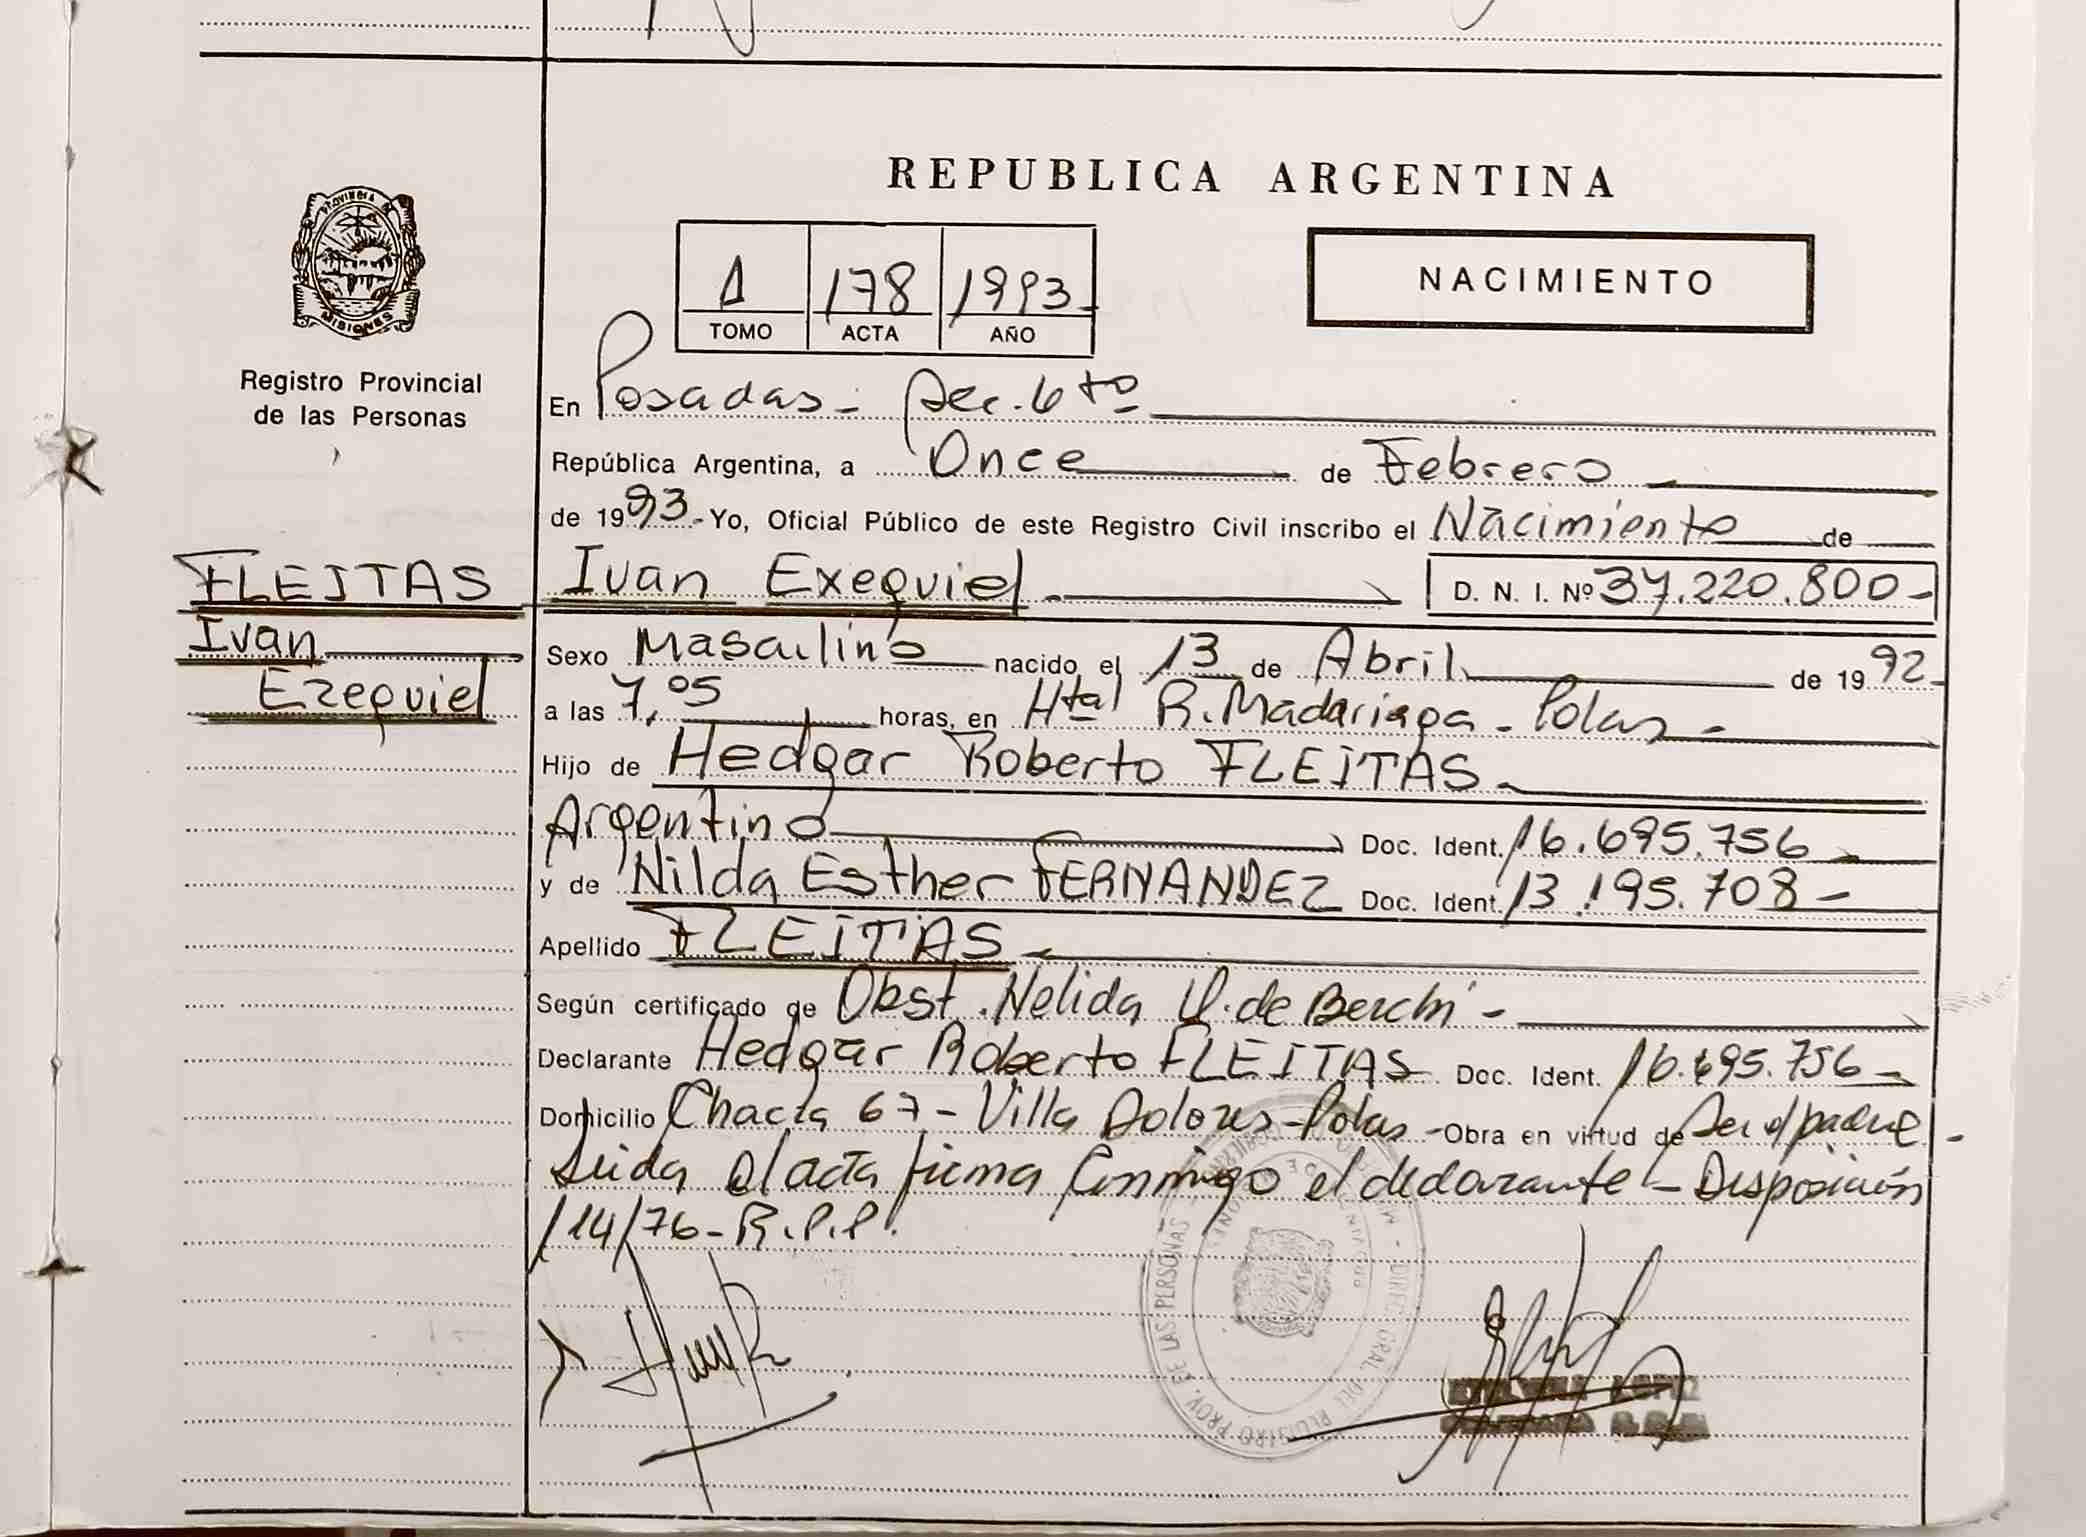 REPUBLICA ARGENTINA
PROVINCIA DE
MISIONES
Registro Provincial
de las Personas
1 178 1993-
TOMO ACTA AÑO
NACIMIENTO
En Posadas - Sec. 6to
República Argentina, a Once de Febrero
de 1993.- Yo, Oficial Público de este Registro Civil inscribo el Nacimiento de
FLEITAS
Ivan
Ezequiel
Ivan Exequiel D. N. I. Nº 37.220.800-
Sexo Masculino nacido el 13 de Abril de 1992-
a las 7,05 horas, en Htal R. Madariaga - Pdas -
Hijo de Hedgar Roberto FLEITAS
Argentino Doc. Ident. 16.695.756
y de Nilda Esther FERNANDEZ Doc. Ident. 13.195.708 -
Apellido FLEITAS
Según certificado de Obst. Nelida de -
Declarante Hedgar Roberto FLEITAS Doc. Ident. 16.695.756-
Domicilio Chacra 67 - Villa Dolores - Pdas - Obra en virtud de Ser el padre -
Leida el acta firma Conmigo el declarante - Disposición
114/76 - R.P.P.
DIREC. GRAL. DEL REGISTRO PROV. DE LAS PERSONAS